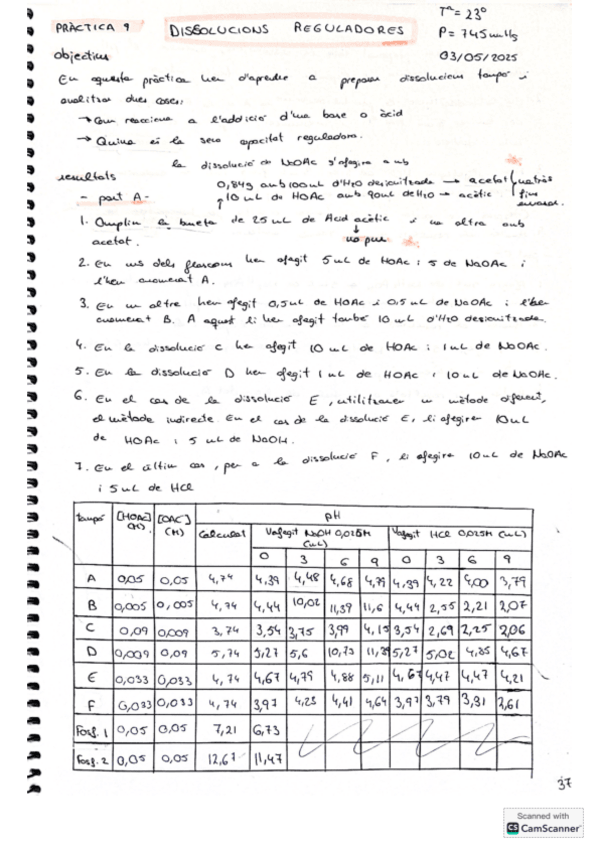 PRÀCTICA 9 DISSOLUCIONS REGULADORES
Tª = 23º
P = 745 mmHg
03/05/2025
objectius
En aquesta pràctica hem d'aprendre a preparar dissolucions tampó i
analitzar dues coses:
→ Com reacciona a l'addició d'una base o àcid
→ Quina és la seva capacitat reguladora.
la dissolució de NaOAc s'afegira amb
resultats
0,84g amb 100mL d'H2O desionitzada → acetat
10 mL de HOAc amb 90mL de H2O → acètic
- part A -
1. Omplim la bureta de 25 mL de Acid acètic i un altra amb
acetat. no pur
2. En un dels glascons hem afegit 5 mL de HOAc i 5 de NaOAc i
l'hem anomenat A.
3. En un altre hem afegit 0,5mL de HOAc i 0,5 mL de NaOAc i l'hem
anomenat B. A aquest li hem afegit també 10 mL d'H2O desionitzada.
4. En la dissolució C hem afegit 10 mL de HOAc i 1mL de NaOAc.
5. En la dissolució D hem afegit 1 mL de HOAc i 10 mL de NaOAc.
6. En el cas de la dissolució E, utilitzarem un mètode diferent,
el mètode indirecte. En el cas de la dissolució E, li afegirem 10mL
de HOAc i 5 mL de NaOH.
7. En el últim cas, per a la dissolució F, li afegirem 10 mL de NaOAc
i 5 mL de HCl
tampó [HOAc] (M) [OAC] (M) pH
Calculat Vafegit NaOH 0,025M (mL) Vafegit HCl 0,025M (mL)
0 3 6 9 0 3 6 9
A 0,05 0,05 4,74 4,39 4,48 4,68 4,79 4,39 4,22 4,00 3,79
B 0,005 0,005 4,74 4,44 10,02 11,39 11,6 4,44 2,55 2,21 2,07
C 0,09 0,009 3,74 3,54 3,75 3,99 4,15 3,54 2,69 2,25 2,06
D 0,009 0,09 5,74 5,27 5,6 10,73 5,27 5,02 4,85 4,67
E 0,033 0,033 4,74 4,67 4,79 4,88 5,11 4,67 4,47 4,47 4,21
F 0,033 0,033 4,74 3,97 4,23 4,41 4,64 3,97 3,79 3,31 2,61
Fosf. 1 0,05 0,05 7,21 6,73
Fosf. 2 0,05 0,05 12,67 11,47
37
Scanned with
CS CamScanner